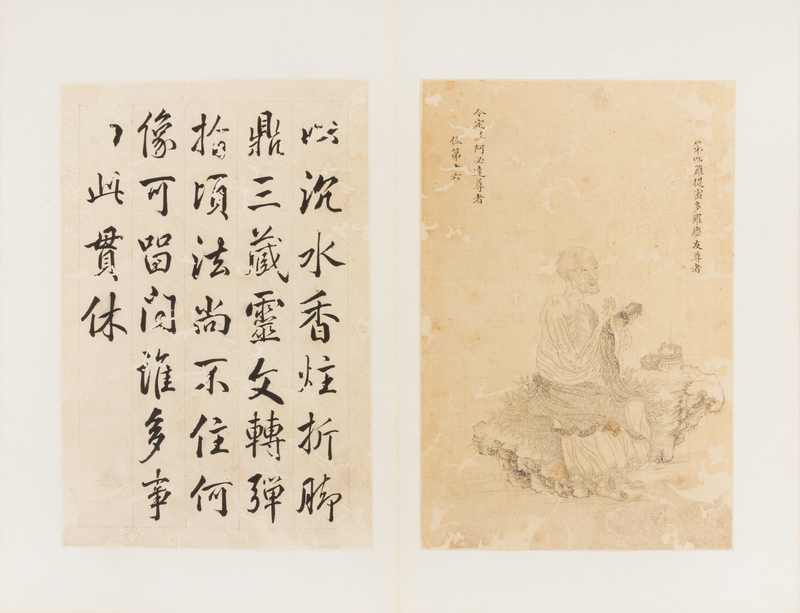 難提密多羅慶友尊者
今定為阿必達尊者
位第十六
以沉水香炷折脚
鼎三藏靈文轉彈
指頃法尚不住何
像可留問誰多事
此貫休